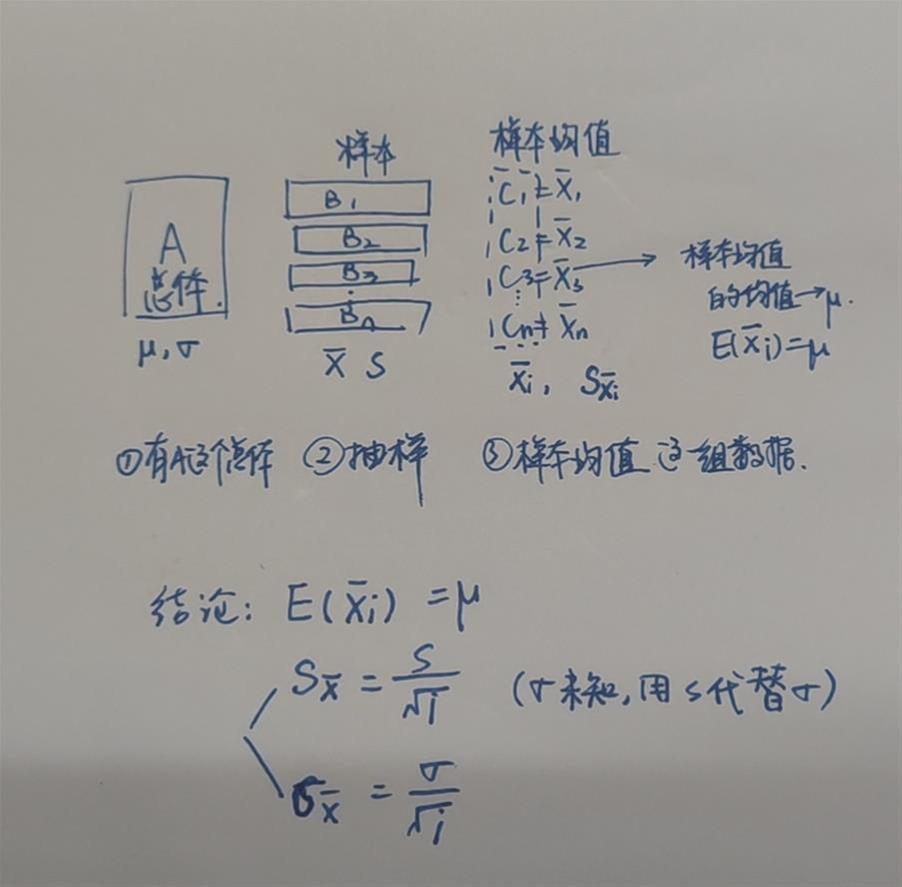 样本
样本均值
A
总体.
μ, σ
B1
B2
B3
⋮
Bn
X̄ S
C1 = X̄1
C2 = X̄2
C3 = X̄3
⋮
Cn = X̄n
X̄i, SX̄i
样本均值
的均值→μ.
E(X̄i)=μ
①有A这个总体 ②抽样 ③样本均值 这一组数据.
结论: E(X̄i) = μ
SX̄ = S/√i (σ未知,用S代替σ)
σX̄ = σ/√i